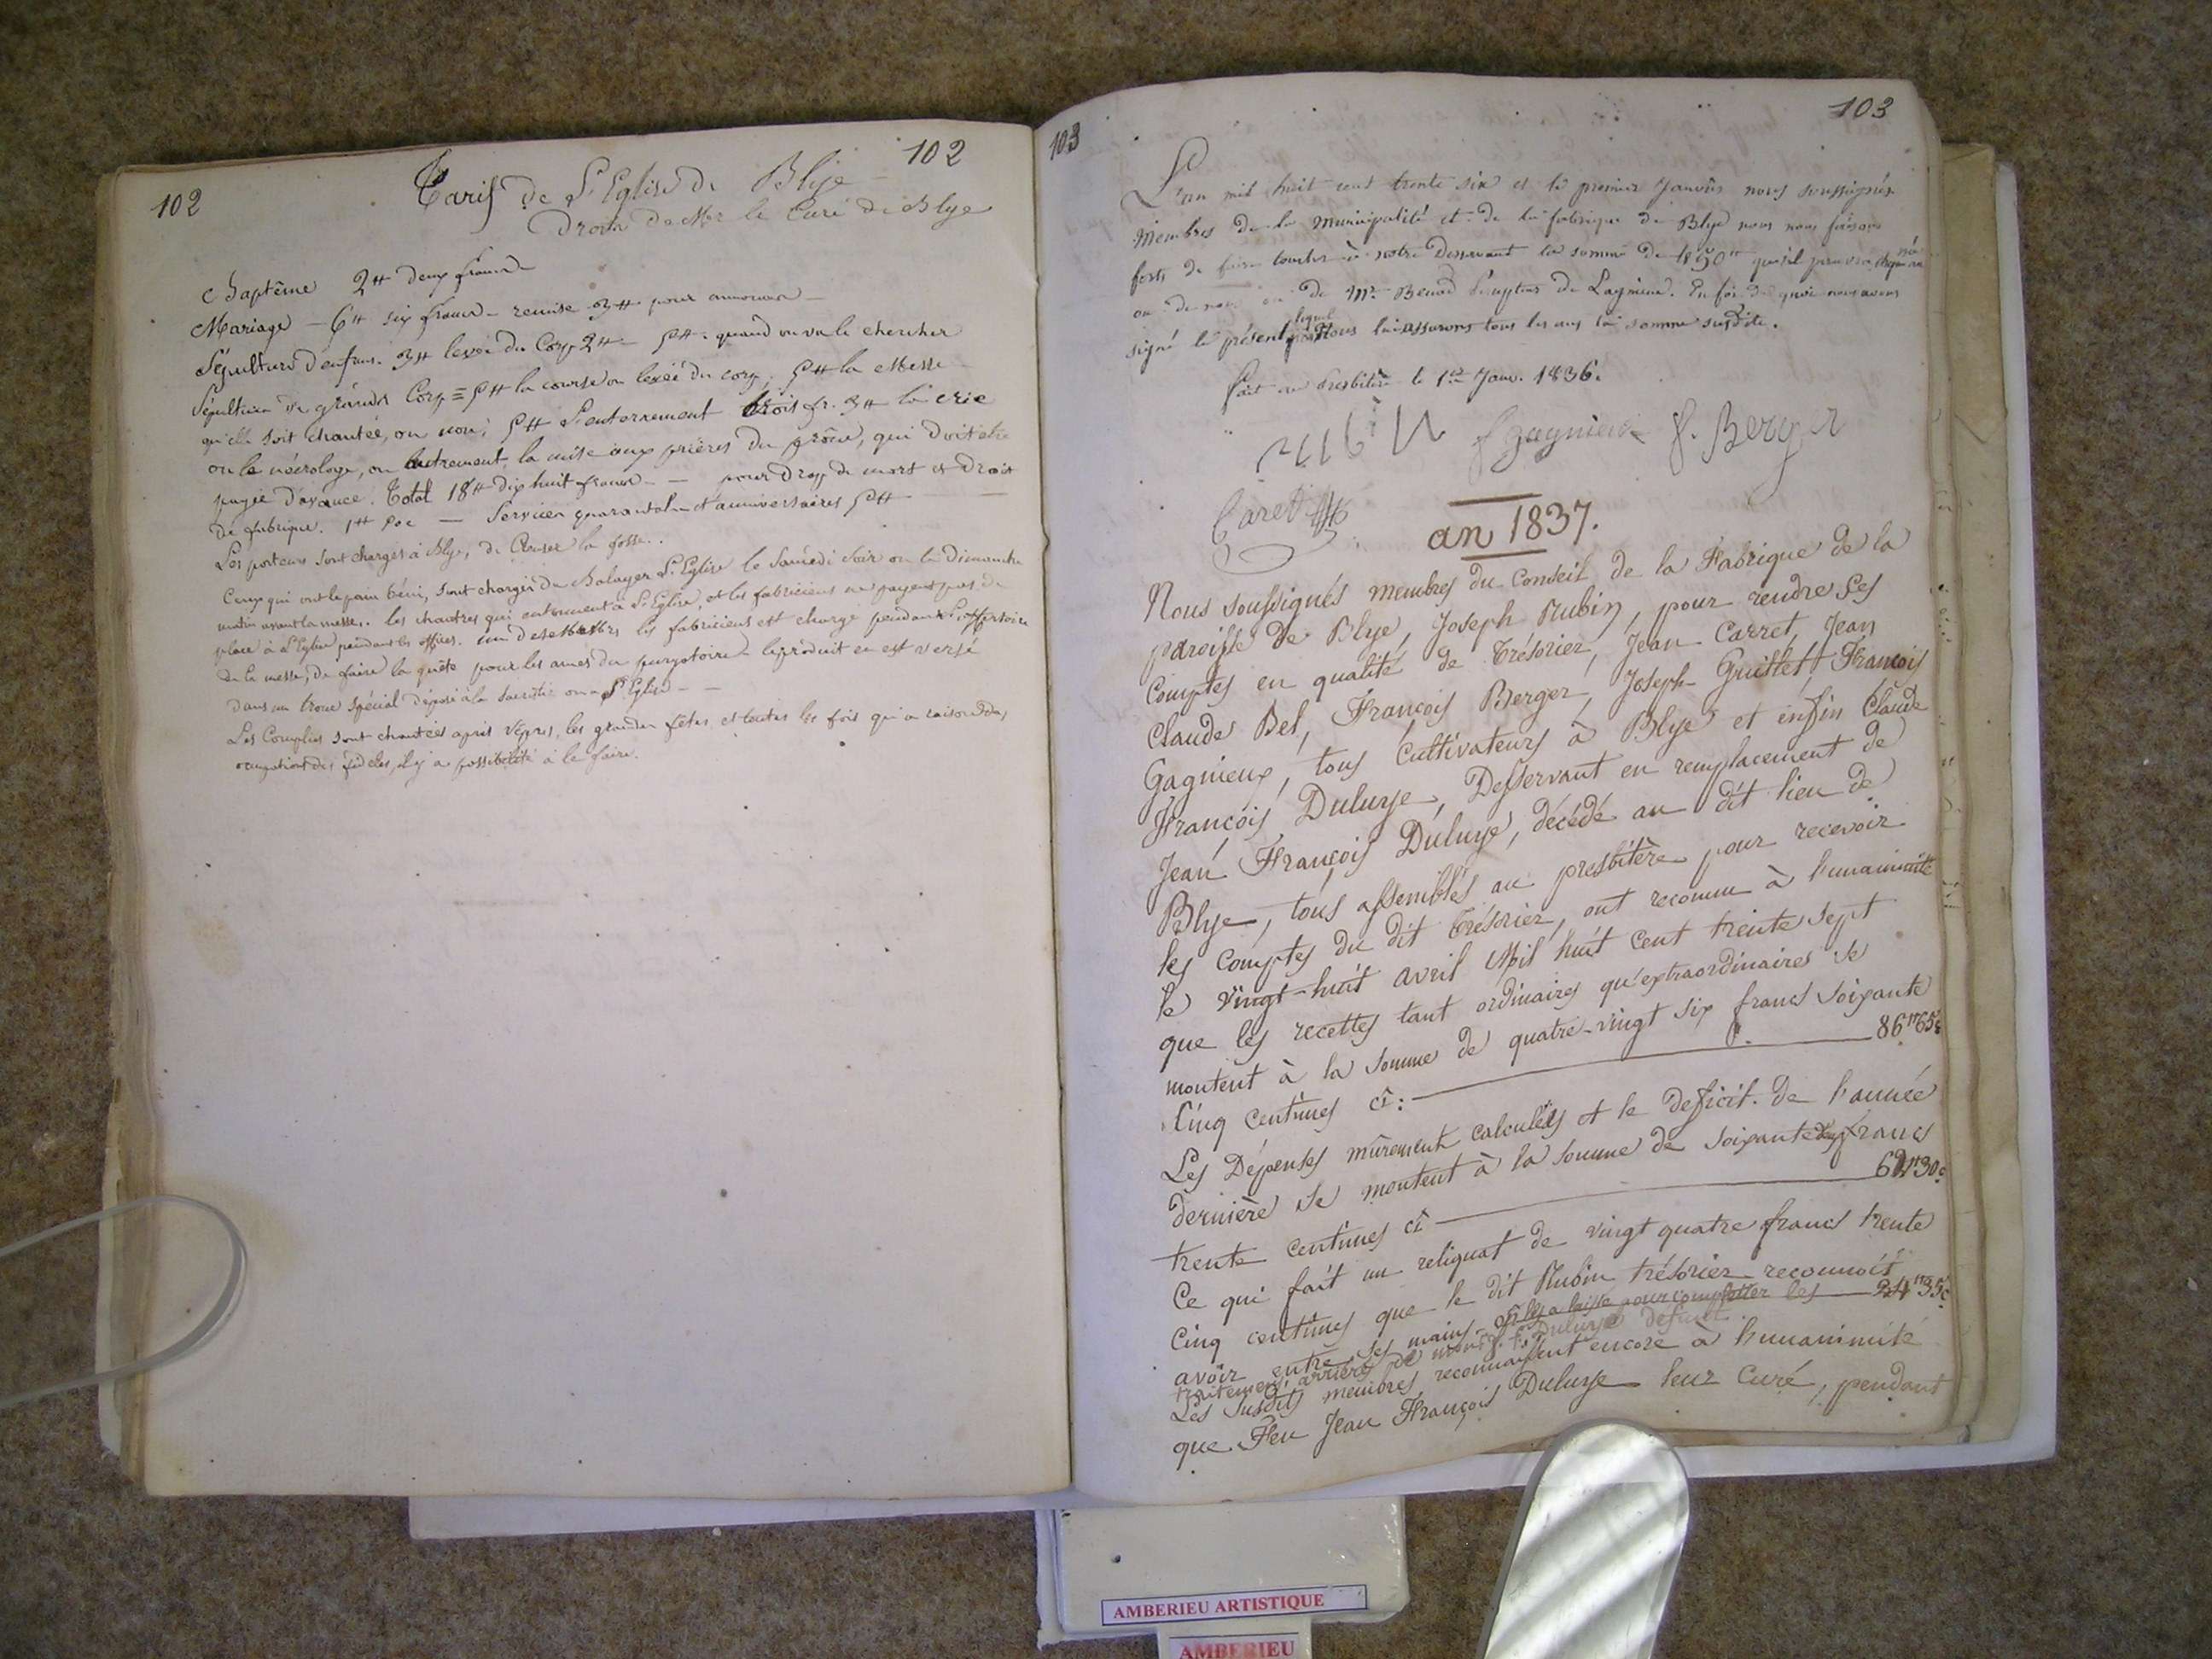 102
102
Tarif de l'Eglise de Blye
Droits de Mr le Curé de Blye
Baptême 2# deux francs
Mariage – 6# six francs – remise 3# pour annonces –
Sépulture d'enfans. 3# levée du Corp 2# – 5#. quand on va le chercher
Sépulture de grands Corp = 5# la course ou levée du corp; 5# la Messe
qu'elle soit chantée, ou non; 5# l'enterrement trois fr. 3# la crie
ou le nécrologe, ou autrement, la mise aux prières du prône, qui doit etre
payée d'avance. Total 18# dix huit francs – – pour drap de mort et droit
de fabrique. 1# 50c – Services quarantales et anniversaires 5# –
Les porteurs sont chargés à Blye, de Creuser la fosse..
Ceux qui ont le pain béni, sont chargés de Balayer l'Eglise le Samedi soir ou le dimanche
matin avant la messe. les chantres qui entonnent à l'Eglise, et les fabriciens ne payent pas de
place à l'Eglise pendant les offices. un des membres les fabriciens est chargé pendant l'offertoire
de la messe, de faire la quête pour les ames du purgatoire – le produit en est versé
dans un tronc spécial déposé à la sacristie ou à l'Eglise – –
Les Complies sont chantées après Vêpres, les grandes fêtes et toutes les fois qu'à raison des
ocupations des fidèles, il y a possibilité à le faire.
103
103
L'an mil huit cent trente six et le premier Janvier nous soussignés
Membres de la Municipalité et de la fabrique de Blye nous nous faisons
forts de faire toucher à notre Desservant la somme de qu'il percevra
ou de nous ou de Mr. Benod de Lagnieu. En foi de quoi nous avons
lequel
signé le présent Nous lui assurons tous les ans la somme susdite.
Fait au Presbitère le 1er Janv. 1836.
f gagnieux f. Berger
Caret
an 1837.
Nous soussignés membres du Conseil de la Fabrique de la
paroisse de Blye, Joseph Rubin, pour rendre ses
Comptes en qualité de Trésorier, Jean Carret, Jean
Claude Bel, François Berger, Joseph Guillet, François
Gagnieux, tous Cultivateurs à Blye et enfin Claude
François Duluye, Desservant en remplacement de
Jean François Duluye, décédé au dit lieu de
Blye, tous assemblés au presbitère pour recevoir
les Comptes du dit Trésorier, ont reconnu à l'unanimité
le vingt-huit avril Mil huit cent trente sept
que les recettes tant ordinaires qu'extraordinaires se
montent à la somme de quatre-vingt six francs soixante
Cinq centimes cî: 86# 65c
Les Dépenses mûrement calculées et le deficit de l'année
dernière se montent à la somme de soixante deux francs
trente centimes cî 62# 30c
Ce qui fait un reliquat de vingt quatre francs trente
Cinq centimes que le dit Rubin trésorier reconnoît
avoir entre ses mains – il les a laissé pour completter les 24# 35c
traitemens arriérés de monsr. J. f. Duluye défunt
Les susdits membres reconnaissent encore à l'unanimité
que Feu Jean François Duluye leur Curé, pendant
AMBERIEU ARTISTIQUE
AMBERIEU